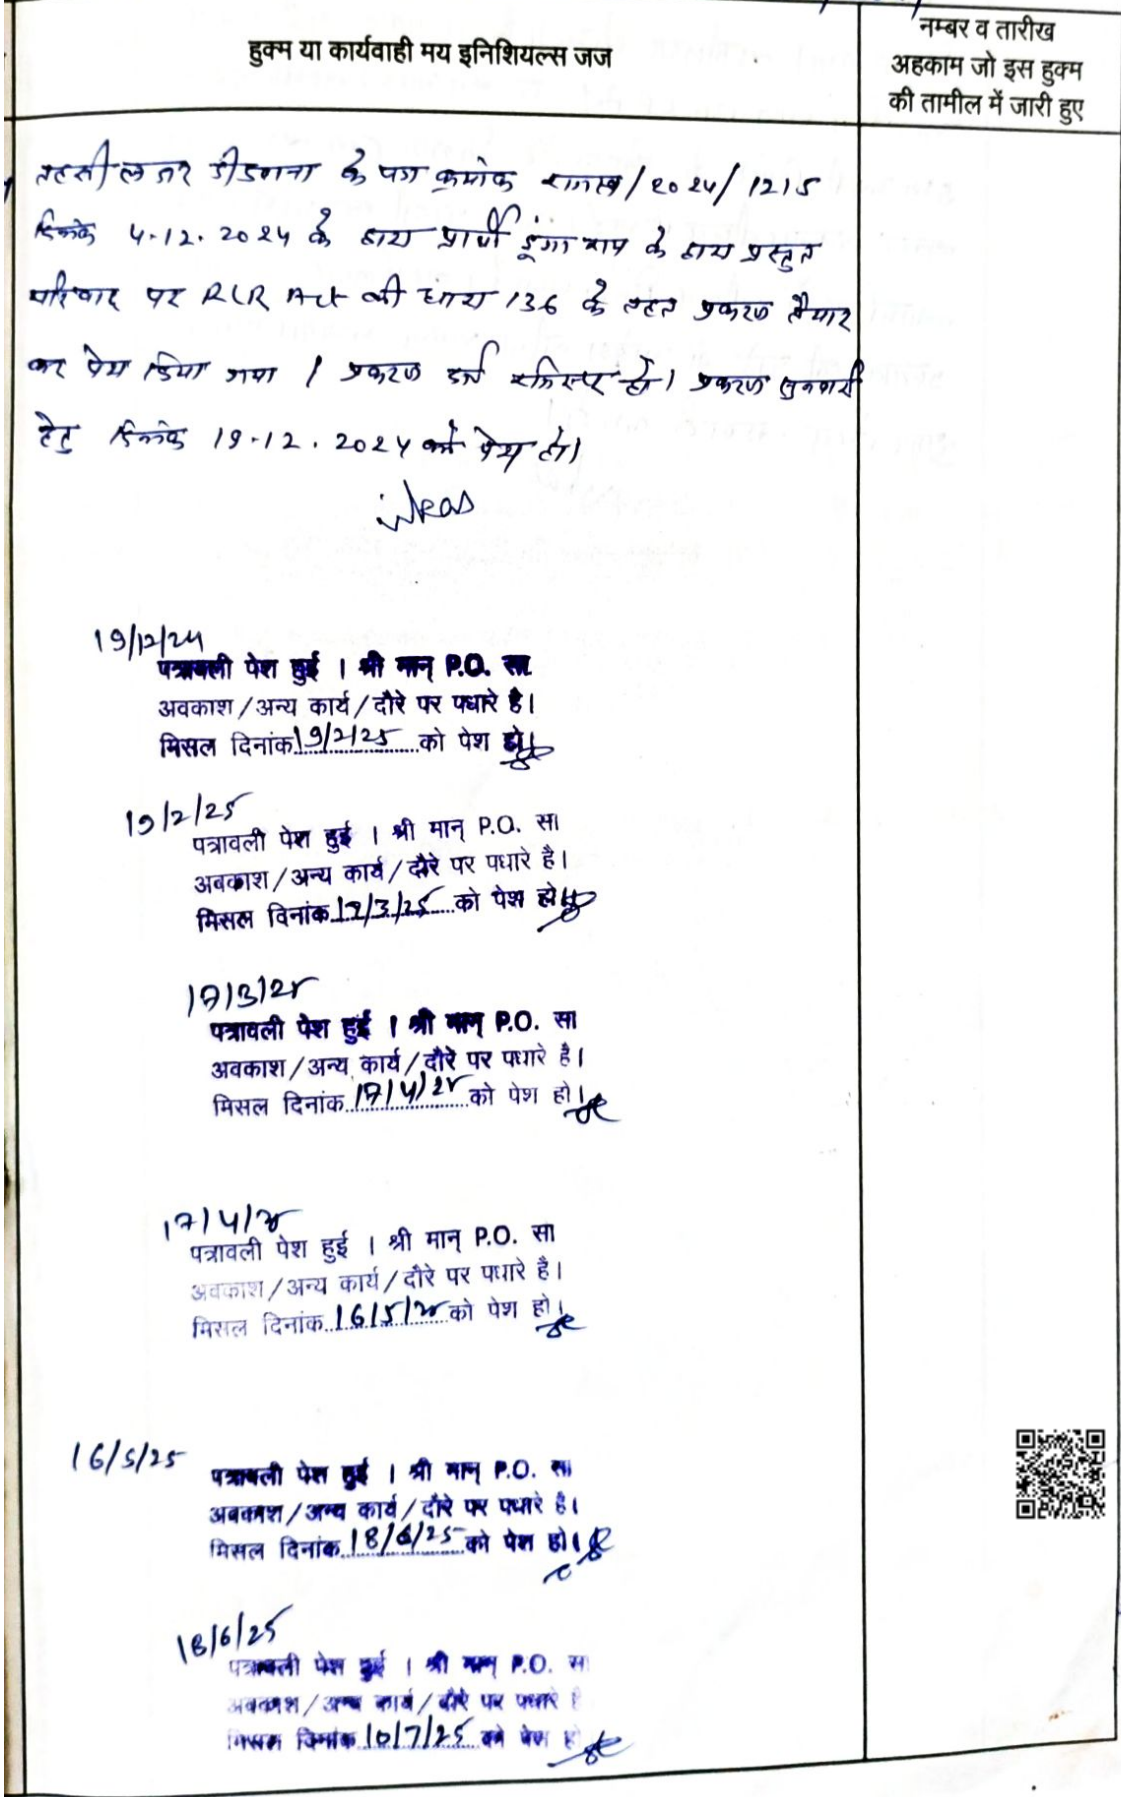 हुक्म या कार्यवाही मय इनिशियल्स जज
नम्बर व तारीख
अहकाम जो इस हुक्म
की तामील में जारी हुए
तहसीलदार डीडवाना के पत्र क्रमांक राजस्व/2024/1215
दिनांक 4.12.2024 के द्वारा प्रार्थी डूंगाराम के द्वारा प्रस्तुत
परिवाद पर RLR Act की धारा 136 के तहत प्रकरण तैयार
कर पेश किया गया । प्रकरण दर्ज रजिस्टर हो। प्रकरण सुनवाई
हेतु दिनांक 19.12.2024 को पेश हो।
19/12/24
पत्रावली पेश हुई । श्री मान् P.O. सा
अवकाश/अन्य कार्य/दौरे पर पधारे है।
मिसल दिनांक 19/2/25 को पेश हो।
19/2/25
पत्रावली पेश हुई । श्री मान् P.O. सा
अवकाश/अन्य कार्य/दौरे पर पधारे है।
मिसल दिनांक 17/3/25 को पेश हो।
17/3/25
पत्रावली पेश हुई । श्री मान् P.O. सा
अवकाश/अन्य कार्य/दौरे पर पधारे है।
मिसल दिनांक 17/4/25 को पेश हो।
17/4/25
पत्रावली पेश हुई । श्री मान् P.O. सा
अवकाश/अन्य कार्य/दौरे पर पधारे है।
मिसल दिनांक 16/5/25 को पेश हो।
16/5/25
पत्रावली पेश हुई । श्री मान् P.O. सा
अवकाश/अन्य कार्य/दौरे पर पधारे है।
मिसल दिनांक 18/6/25 को पेश हो।
18/6/25
पत्रावली पेश हुई । श्री मान् P.O. सा
अवकाश/अन्य कार्य/दौरे पर पधारे है
मिसल दिनांक 10/7/25 को पेश हो